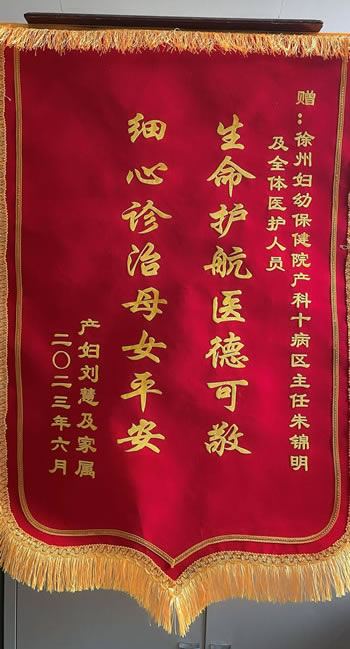 赠：徐州妇幼保健院产科十病区主任朱锦明
及全体医护人员
生命护航医德可敬
细心诊治母女平安
产妇刘慧及家属
二〇二三年六月